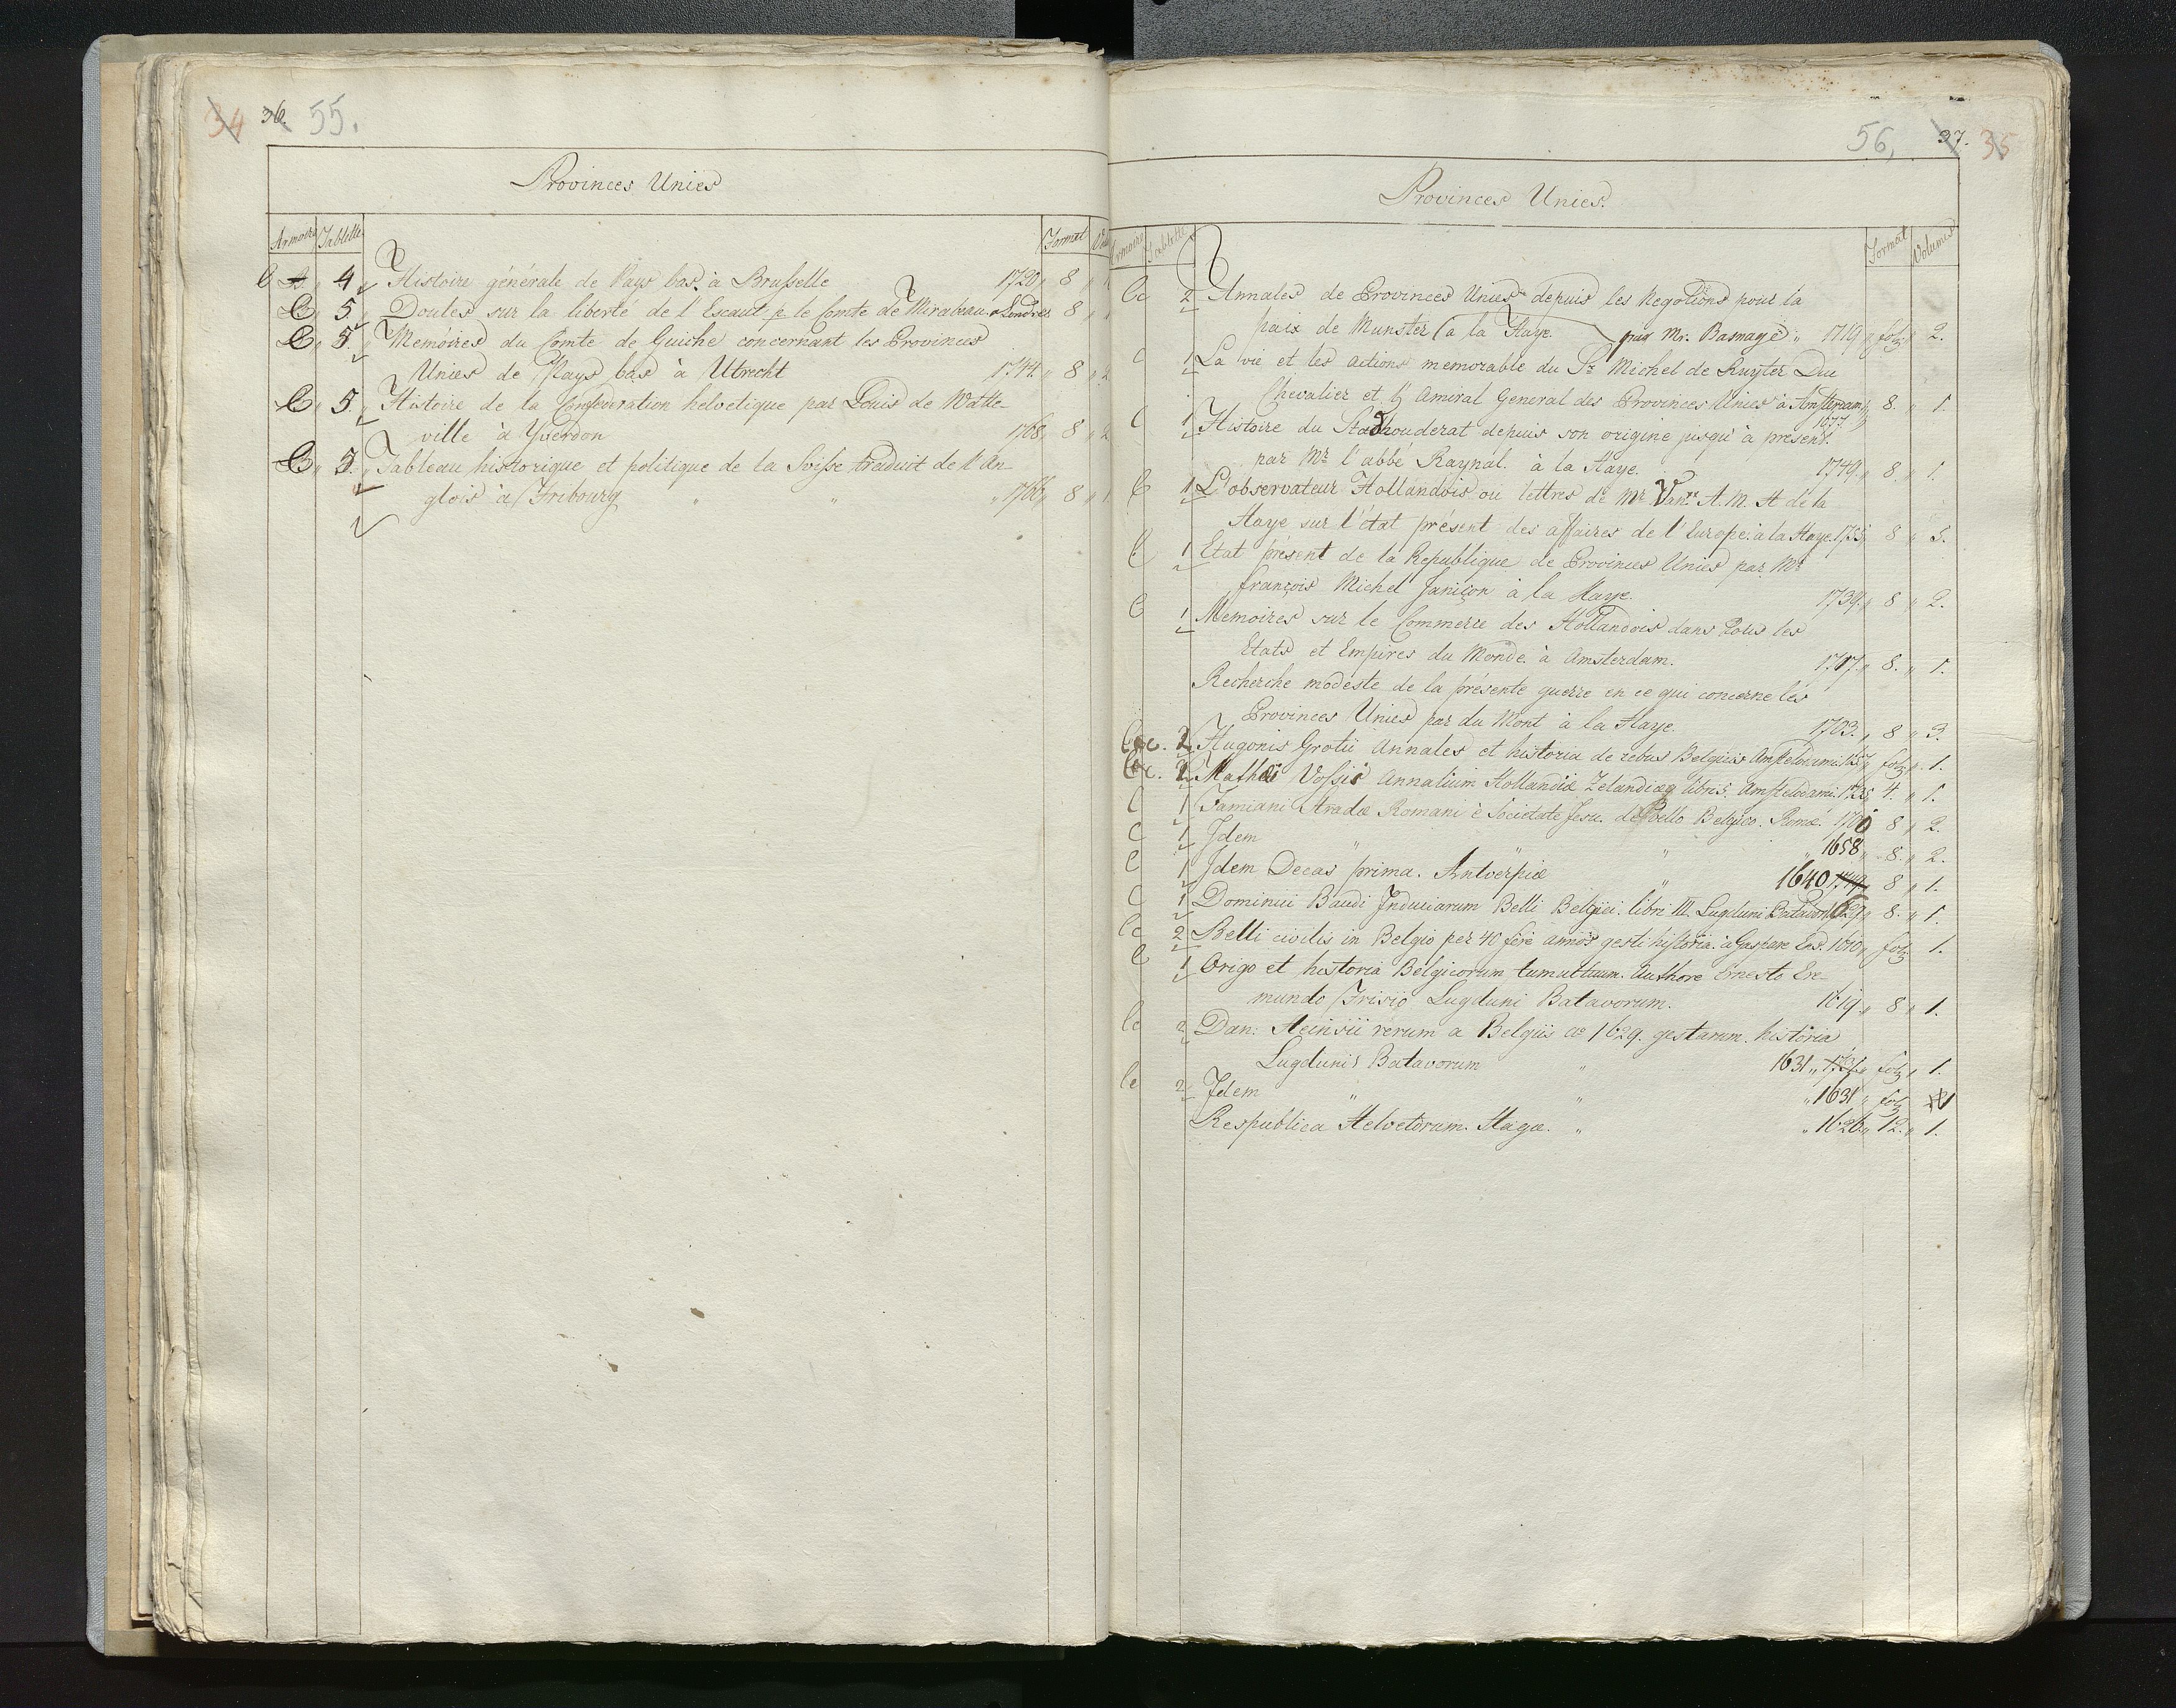 34 36. 55.
Provinces Unies
Armoire Tablette Format Vol
C 4 Histoire générale de Pays bas. à Brusselle 1720 „ 8 „
C „ 5 „ Doutes sur la liberté de l'Escaut p. le Comte de Mirabeau. à Londres 8 „
C „ 5. „ Memoires du Comte de Guiche concernant les Provinces
Unies de Pays bas à Utrecht 1744. „ 8 „ 2
C „ 5. „ Histoire de la Confederation helvetique par Louis de Watte-
ville à Yverdon 1768 „ 8 „ 2
C „ 5. „ Tableau historique et politique de la Suisse traduit de l'An-
glois à Fribourg „ „ „ 1766 „ 8 „ 1
56, 37. 35
Provinces Unies.
Armoire Tablette Format Volumes
Cc 2 Annales de Provinces Unies depuis les Negotions pour la
paix de Munster (a la Haye. par Mr. Basnage „ 1719 „ fol „ 2.
C 1 La vie et les actions memorable du Sr. Michel de Ruyter Duc
Chevalier et Lt Amiral General des Provinces Unies à Amsterdam, 8. „ 1.
1677. „
C 1 Histoire du Stadhouderat depuis son origine jusqu'à present.
par Mr l'abbé Raynal. à la Haye. 1749. „ 8. „ 1.
C 1 L'observateur Hollandois ou lettres de Mr Van.** A. M. H de la
Haye sur l'état présent des affaires de l'Europe. à la Haye. 1755 „ 8 „ 5.
C 1 Etat présent de la Republique de Provinces Unies par Mr
françois Michel Janiçon à la Haye. 1739. „ 8 „ 2.
C 1 Memoires sur le Commerce des Hollandois dans tous les
Etats et Empires du Monde. à Amsterdam. 1717. „ 8. „ 1.
Recherche modeste de la présente guerre en ce qui concerne les
Provinces Unies par du Mont à la Haye. 1703. „ 8 „ 3.
Cc. 2 Hugonis Grotii Annales et historia de rebus Belgicis Amstelodami. 1657 „ fol „ 1.
Cc. 2 Mathei Vossii Annalium Hollandiæ Zelandiæq libri 5. Amstelodami. „ 4. „ 1.
C 1 Famiani Stradæ Romani è Societate Jesu. de Bello Belgico. Romæ. 1700 8 „ 2.
C 1 Idem „ „ „ 1658 „ 8. „ 2.
C 1 Idem Decas prima. Antverpiæ „ 1640 1749 „ 8 „ 1.
C 1 Dominii Baudi Induciarum Belli Belgici. libri III. Lugduni Batavor. 1629 „ 8. „ 1.
Cc 2 Belli civilis in Belgio per 40 fere annos gesti historia. à Gaspare Ens. 1610 „ fol „ 1.
C 1 Origo et historia Belgicorum tumultuum. Authore Ernesto Ere-
mundo Frisio Lugduni Batavorum. 1619. „ 8 „ 1.
Cc 2 Dan: Heinsii rerum a Belgiis ao 1629. gestarum. historia
Lugduni Batavorum „ 1631 „ 1731 „ fol „ 1.
Cc 2 Idem „ „ „ 1631 „ fol 1
Respublica Helvetorum. Hagæ. „ „ 1626. „ 12. „ 1.